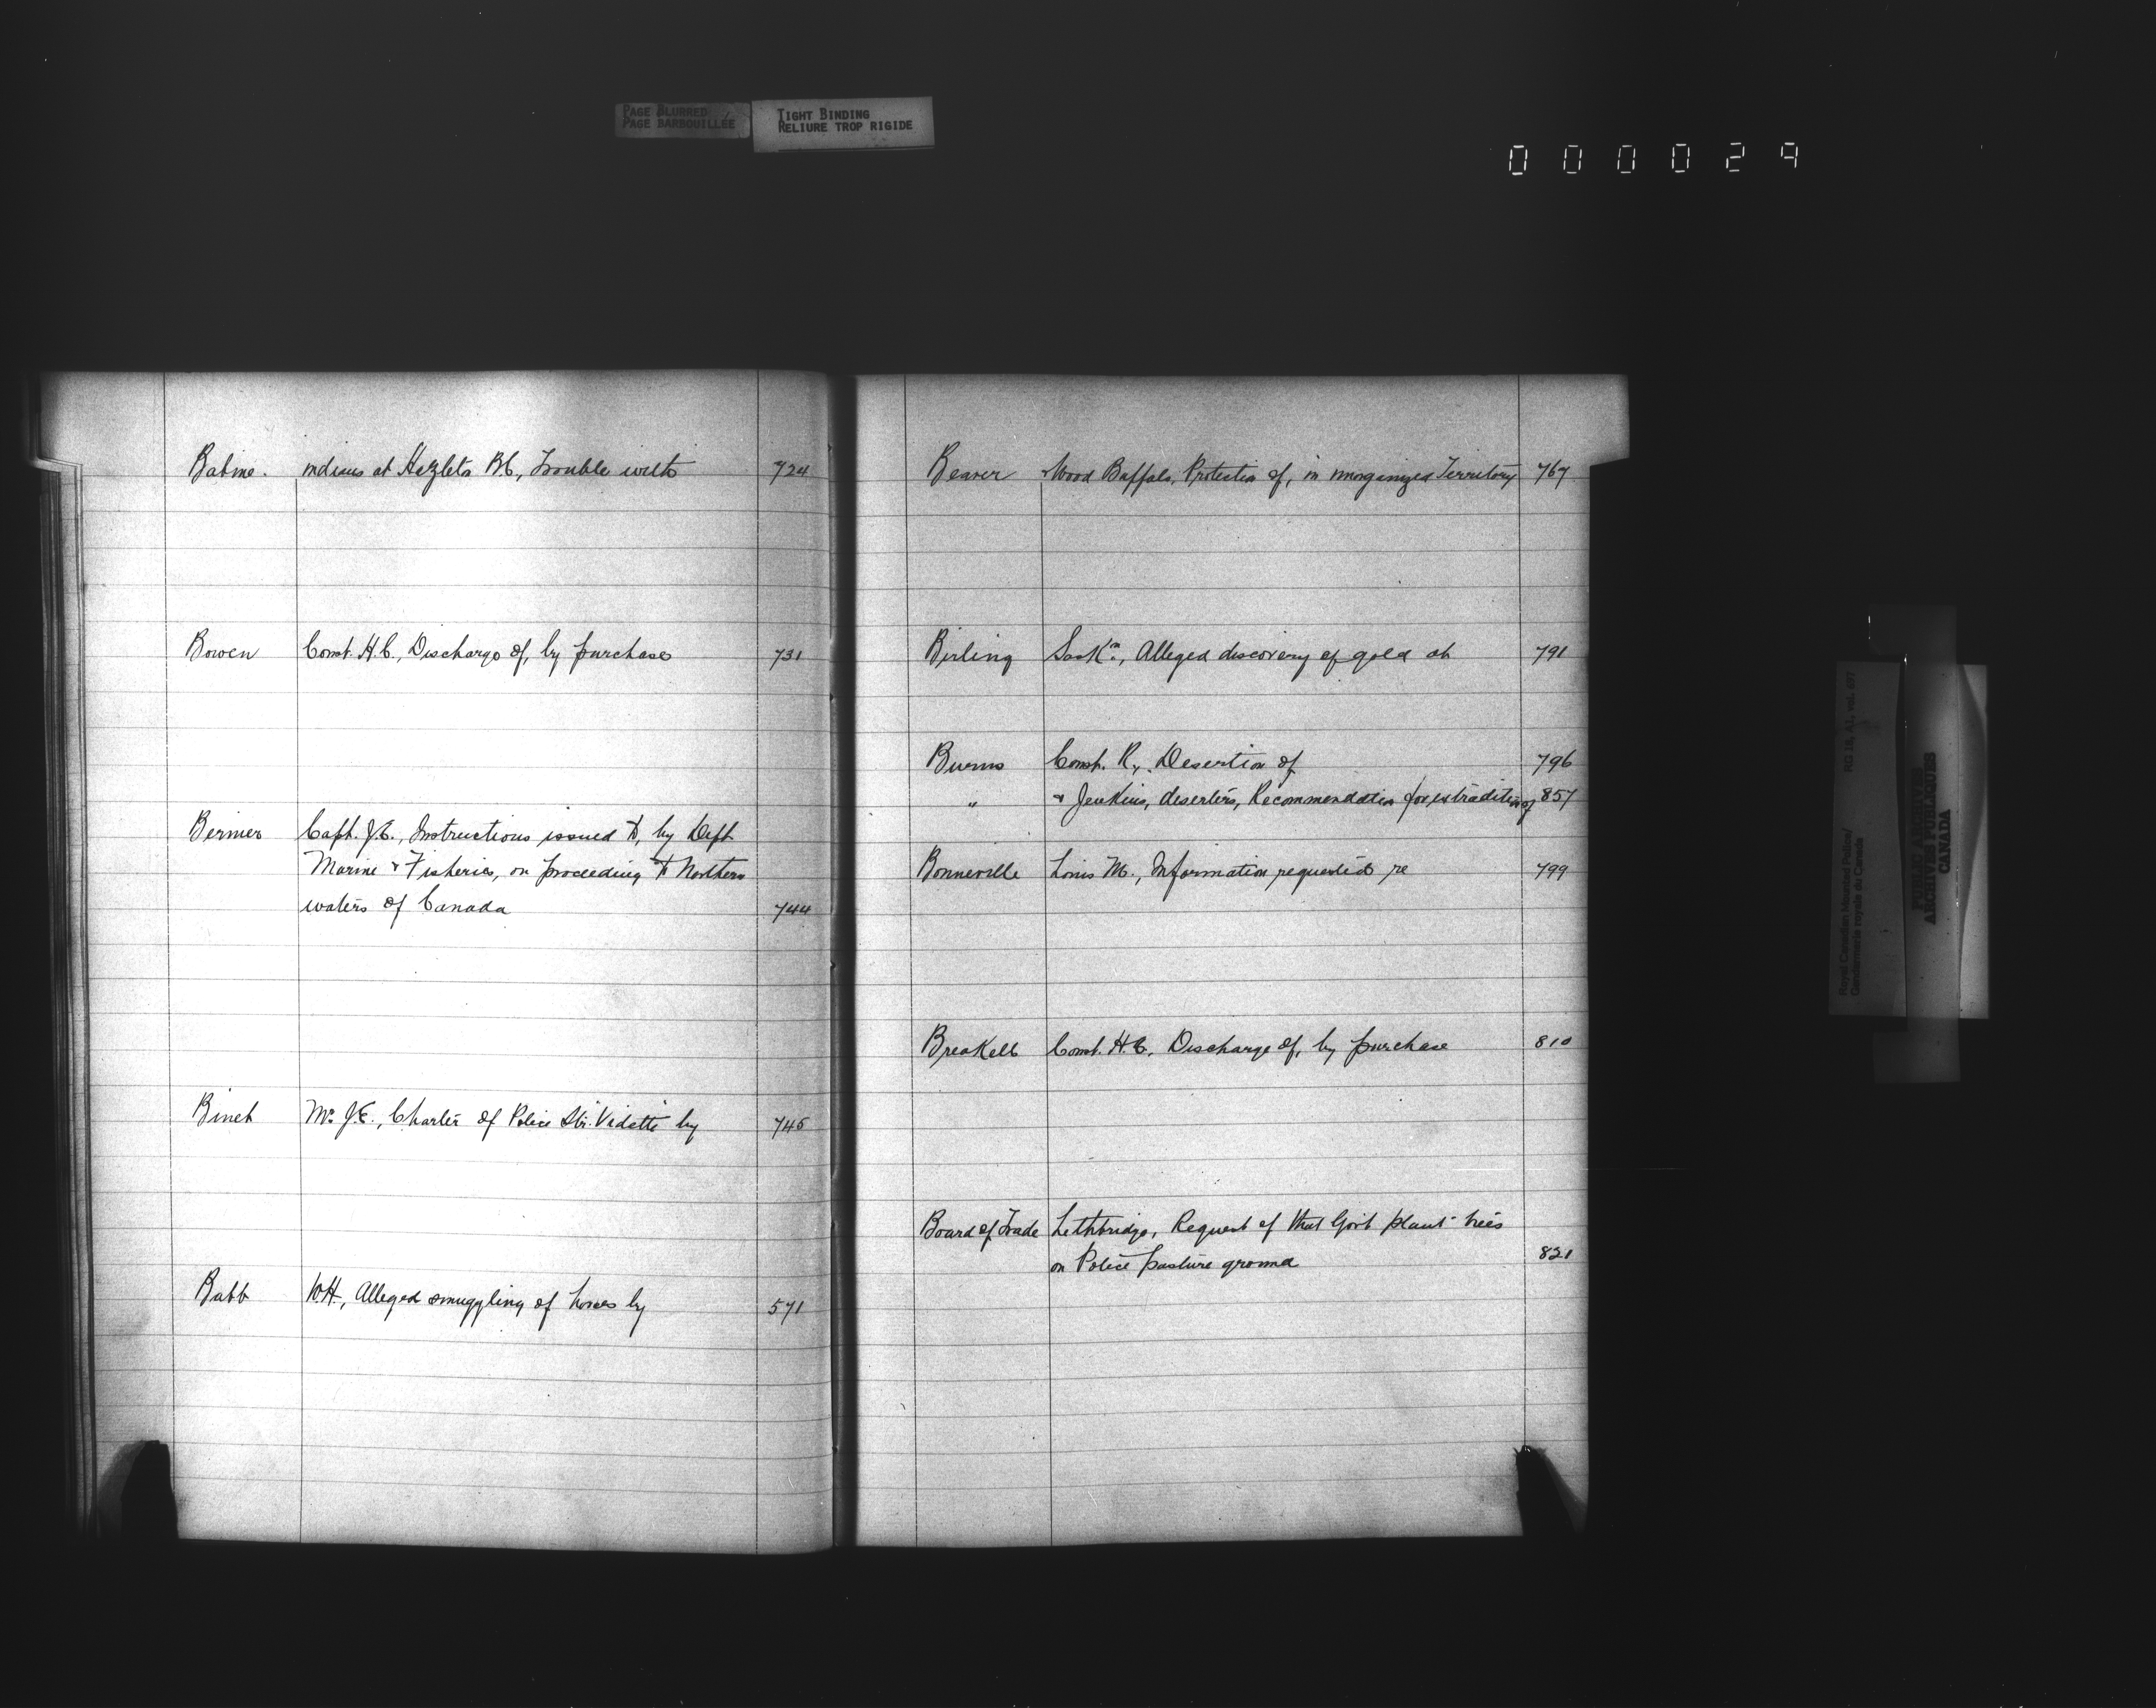 PAGE BLURRED
PAGE BARBOUILLÉE
TIGHT BINDING
RELIURE TROP RIGIDE
000029
Babine. Indians at Hazleton B.C., Trouble with 724
Bowen Const. H.C., Discharge of, by purchase 731
Bernier Capt. J.E., Instructions issued to, by Dept
Marine & Fisheries, on proceeding to Northern
waters of Canada 744
Binet Mr. J.E., Charter of Police Str. "Vidette" by 745
Babb W.H., Alleged smuggling of horses by 571
Beaver & Wood Buffalo, Protection of, in unorganized Territory 767
Birling Sask'n., Alleged discovery of gold at 791
Burns Const. R., Desertion of 796
" & Jenkins, deserters, Recommendation for extradition of 857
Bonneville Louis M., Information requested re 799
Breakell Const. H.C. Discharge of, by purchase 810
Board of Trade Lethbridge, Request of that Gov't plant trees
on Police pasture ground 821
RG 18, A1, vol. 697
Royal Canadian Mounted Police/
Gendarmerie royale du Canada
PUBLIC ARCHIVES
ARCHIVES PUBLIQUES
CANADA